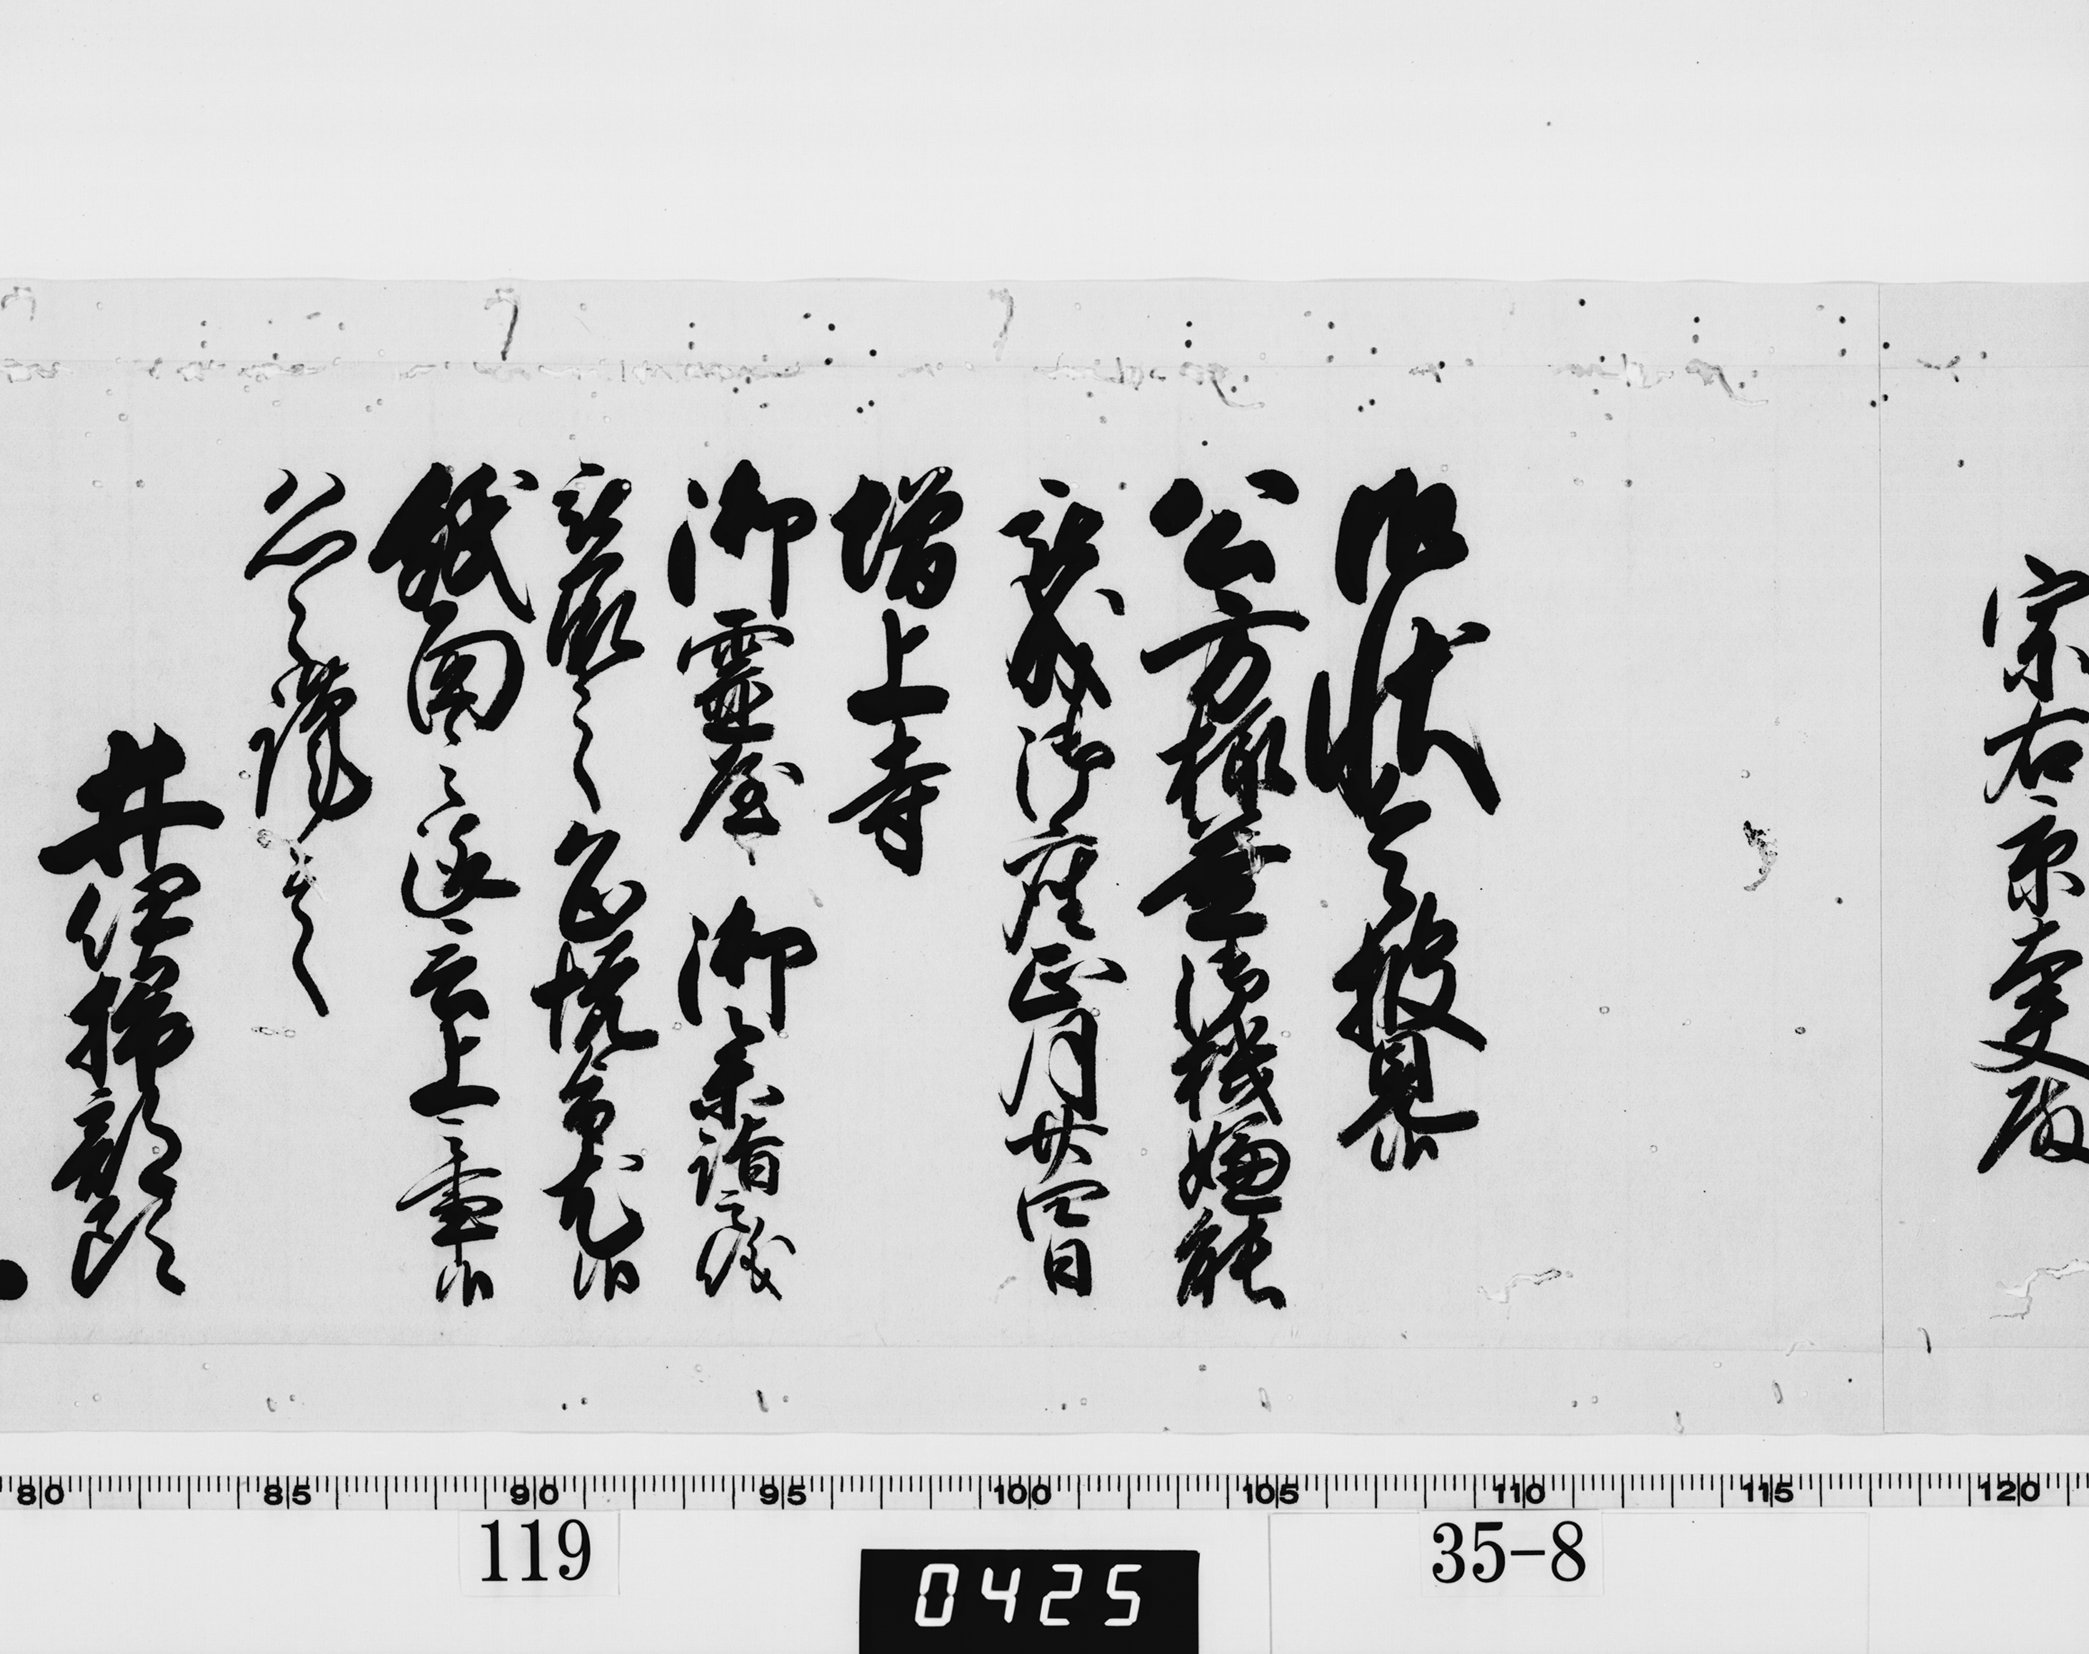 宗右京大夫殿
御状令披見候
公方様益御機嫌能
被成御座正月廿四日
増上寺
御霊屋 御参詣之儀
被承之
紙面之通言上之
恐々謹言
井伊掃部頭
80 85 90 95 100 105 110 115 120
119
35-8
0425